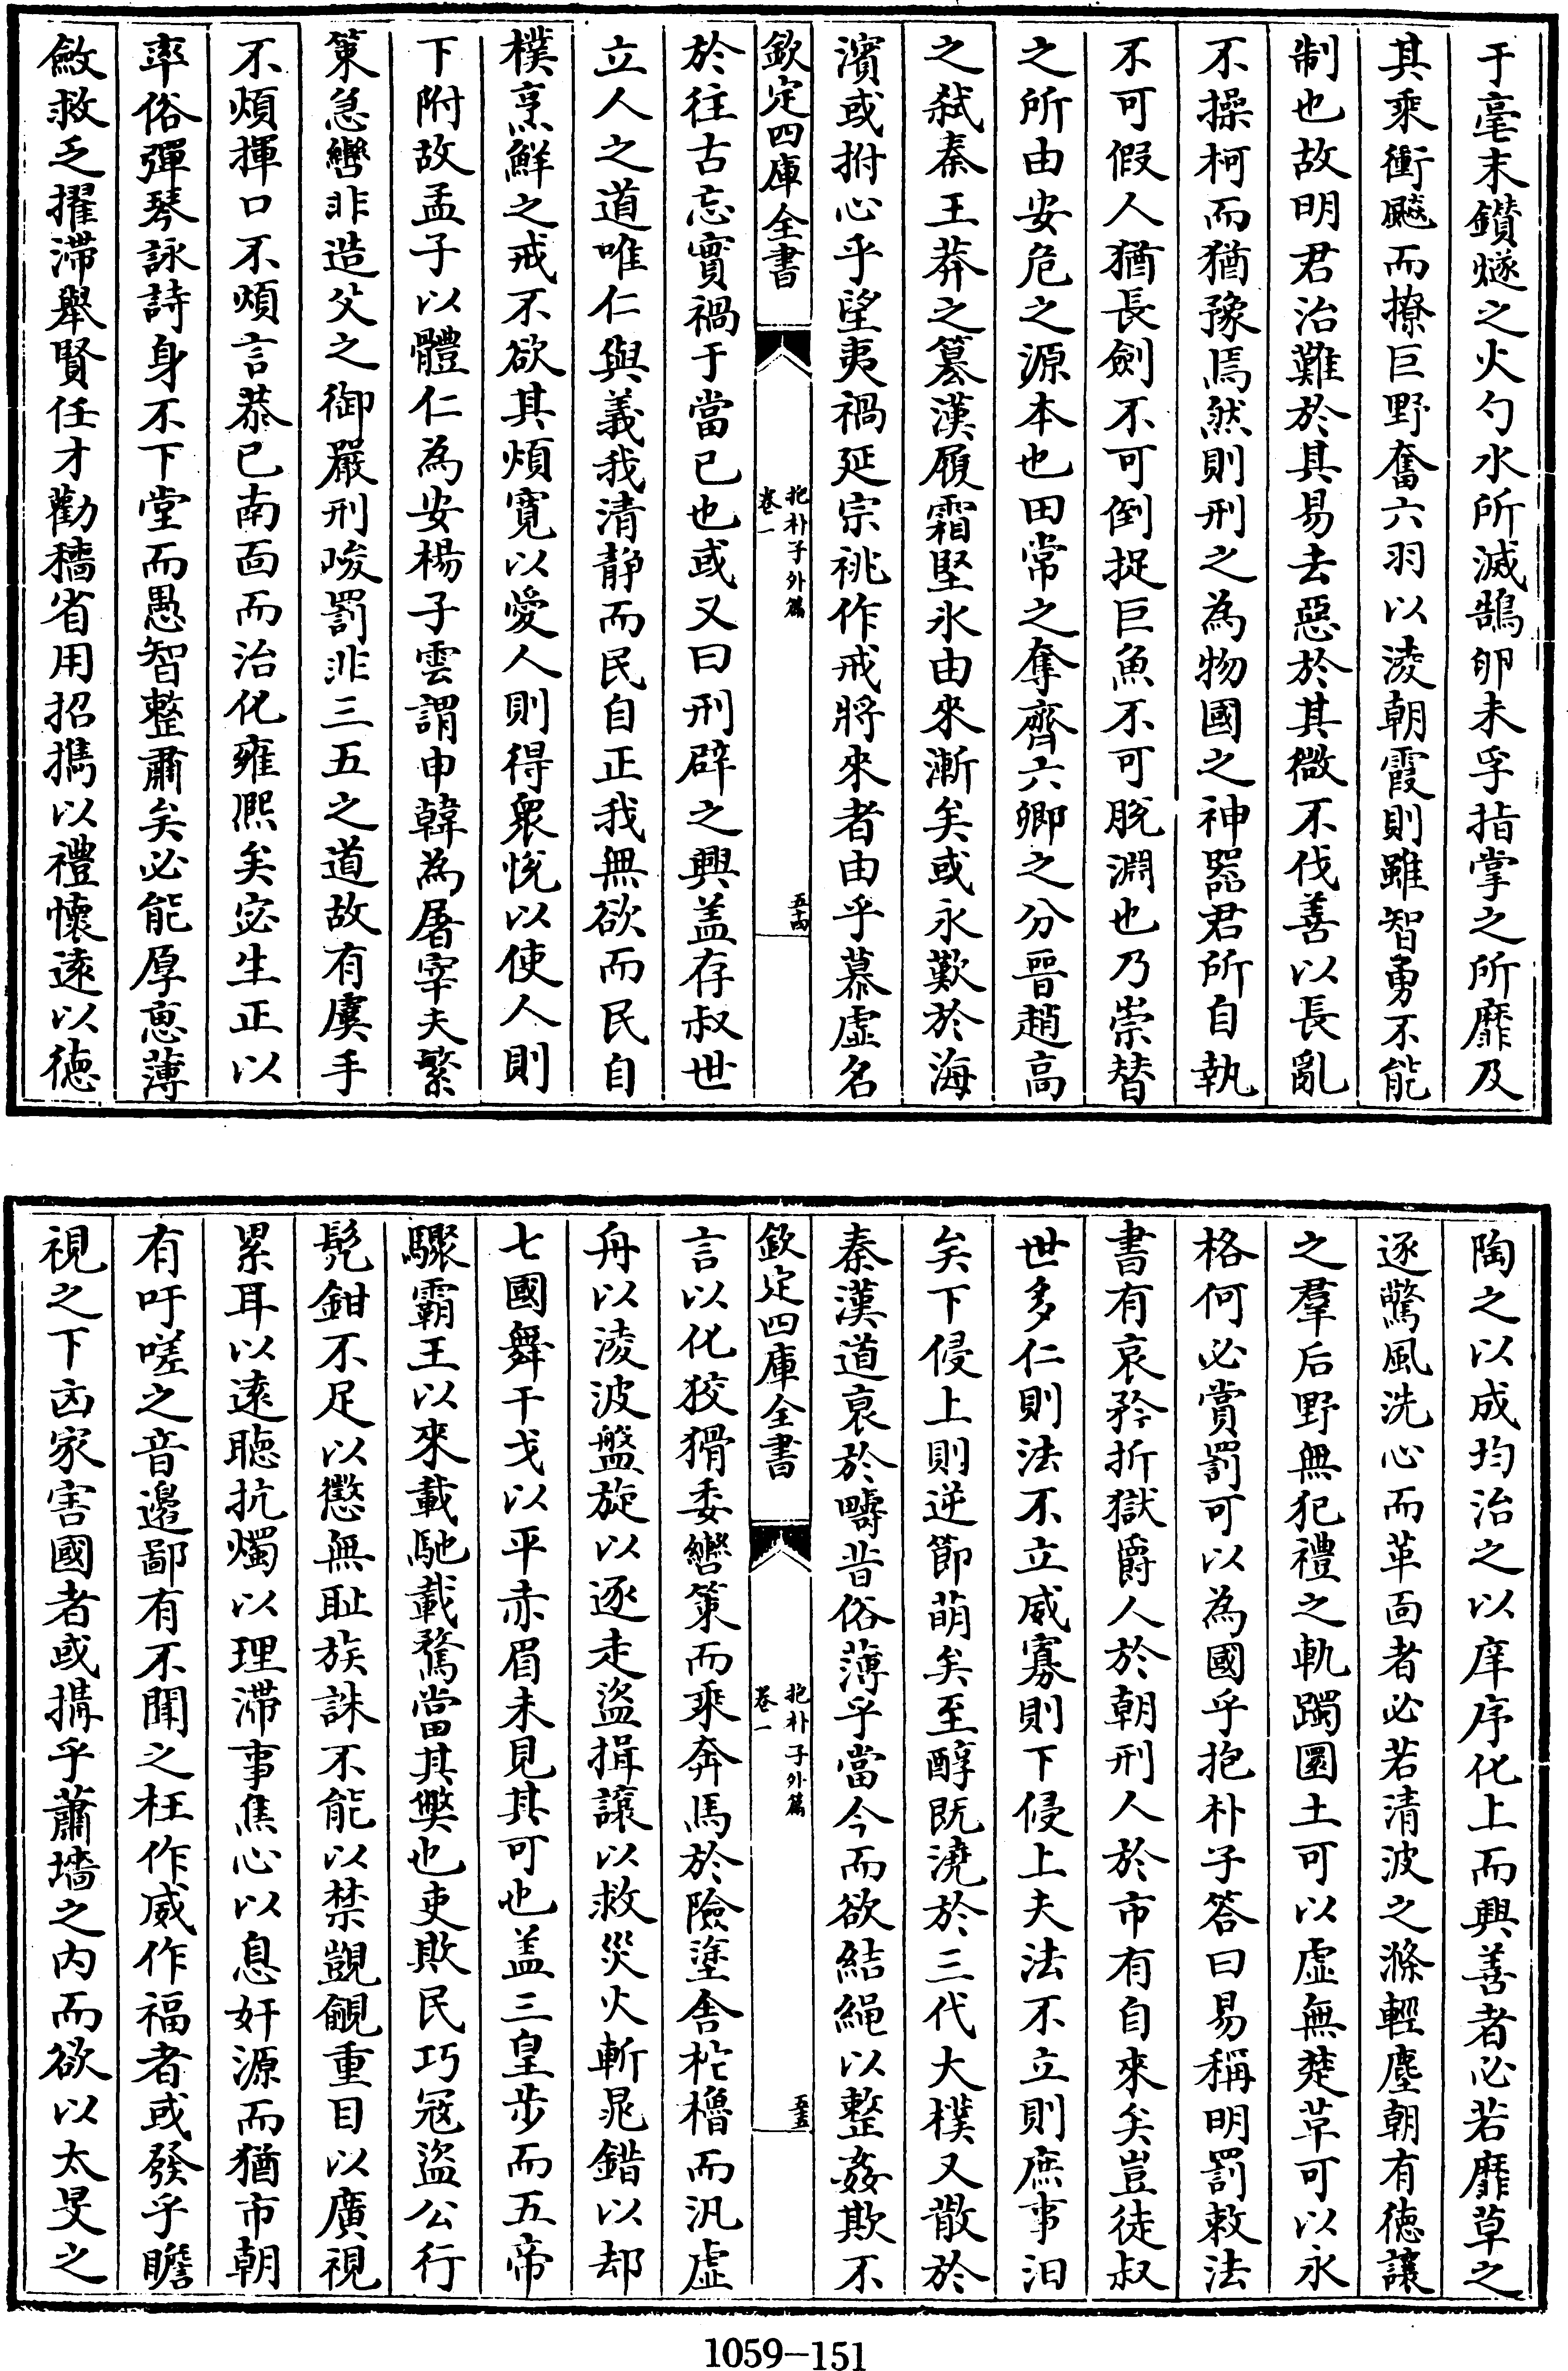 于毫末鑚燧之火勺水所滅鵠卵未孚指掌之所靡及
其乘衝飈而撩巨野奮六羽以淩朝霞則雖智勇不能
制也故明君治難於其易去惡於其微不伐善以長亂
不操柯而猶豫焉然則刑之為物國之神器君所自執
不可假人猶長劍不可倒捉巨魚不可脫淵也乃崇替
之所由安危之源本也田常之奪齊六卿之分晉趙高
之弑秦王莽之簒漢履霜堅氷由來漸矣或永歎於海
濱或拊心乎望夷禍延宗祧作戒將來者由乎慕虛名
欽定四庫全書
抱朴子外篇
卷一
五十四
於往古忘實禍于當己也或又曰刑辟之興盖存叔世
立人之道唯仁與義我清静而民自正我無欲而民自
樸烹鮮之戒不欲其煩寛以愛人則得衆悅以使人則
下附故孟子以體仁為安楊子雲謂申韓為屠宰夫繁
策急轡非造父之御嚴刑峻罰非三五之道故有虞手
不煩揮口不煩言恭已南面而治化雍熈矣宓生正以
率俗彈琴詠詩身不下堂而愚智整肅矣必能厚恵薄
斂救乏擢滯舉賢任才勸穡省用招攜以禮懷逺以徳
陶之以成均治之以庠序化上而興善者必若靡草之
逐驚風洗心而革面者必若清波之滌輕塵朝有徳讓
之羣后野無犯禮之軌躅圜土可以虛無楚革可以永
格何必賞罰可以為國乎抱朴子答曰易稱明罰敕法
書有哀矜折獄爵人於朝刑人於市有自來矣豈徒叔
世多仁則法不立威寡則下侵上夫法不立則庶事汩
矣下侵上則逆節萌矣至醇既澆於三代大樸又散於
秦漢道衰於疇昔俗薄乎當今而欲結繩以整姦欺不
欽定四庫全書
抱朴子外篇
卷一
五十五
言以化狡猾委轡策而乘奔馬於險塗舍柁櫓而汎虛
舟以淩波盤旋以逐走盜揖讓以救災火斬晁錯以却
七國舞干戈以平赤眉未見其可也盖三皇步而五帝
驟霸王以來載馳載騖當其弊也吏欺民巧冦盜公行
髠鉗不足以懲無耻族誅不能以禁覬覦重目以廣視
累耳以逺聽抗燭以理滯事焦心以息奸源而猶市朝
有吁嗟之音邊鄙有不聞之枉作威作福者或發乎瞻
視之下凶家害國者或搆乎蕭墻之内而欲以太昊之
1059-151